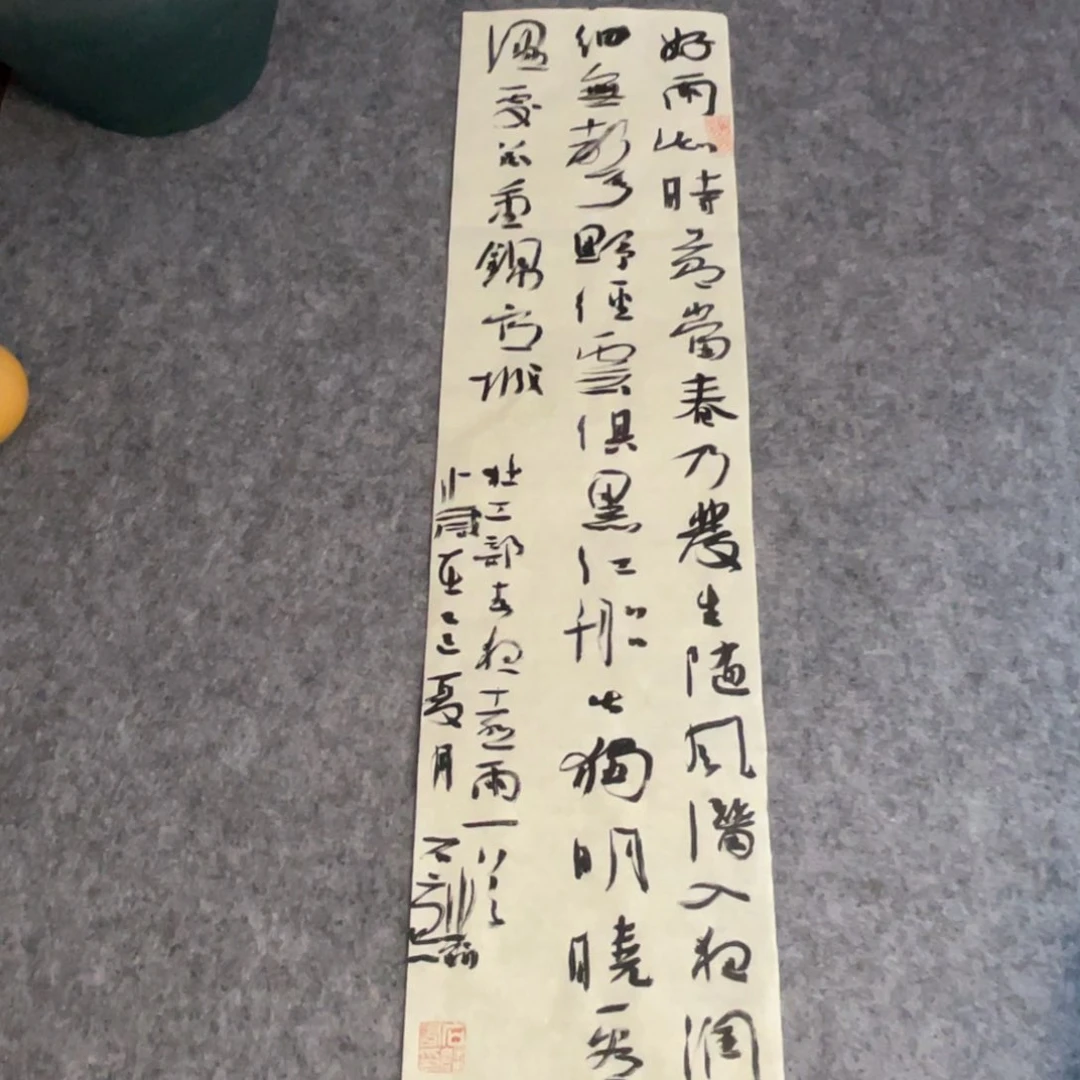 好雨知時節當春乃發生隨風潛入夜潤
細無聲野徑雲俱黑江船火獨明曉看
濕處花重錦官城
杜工部春夜喜雨一首
乙巳夏月